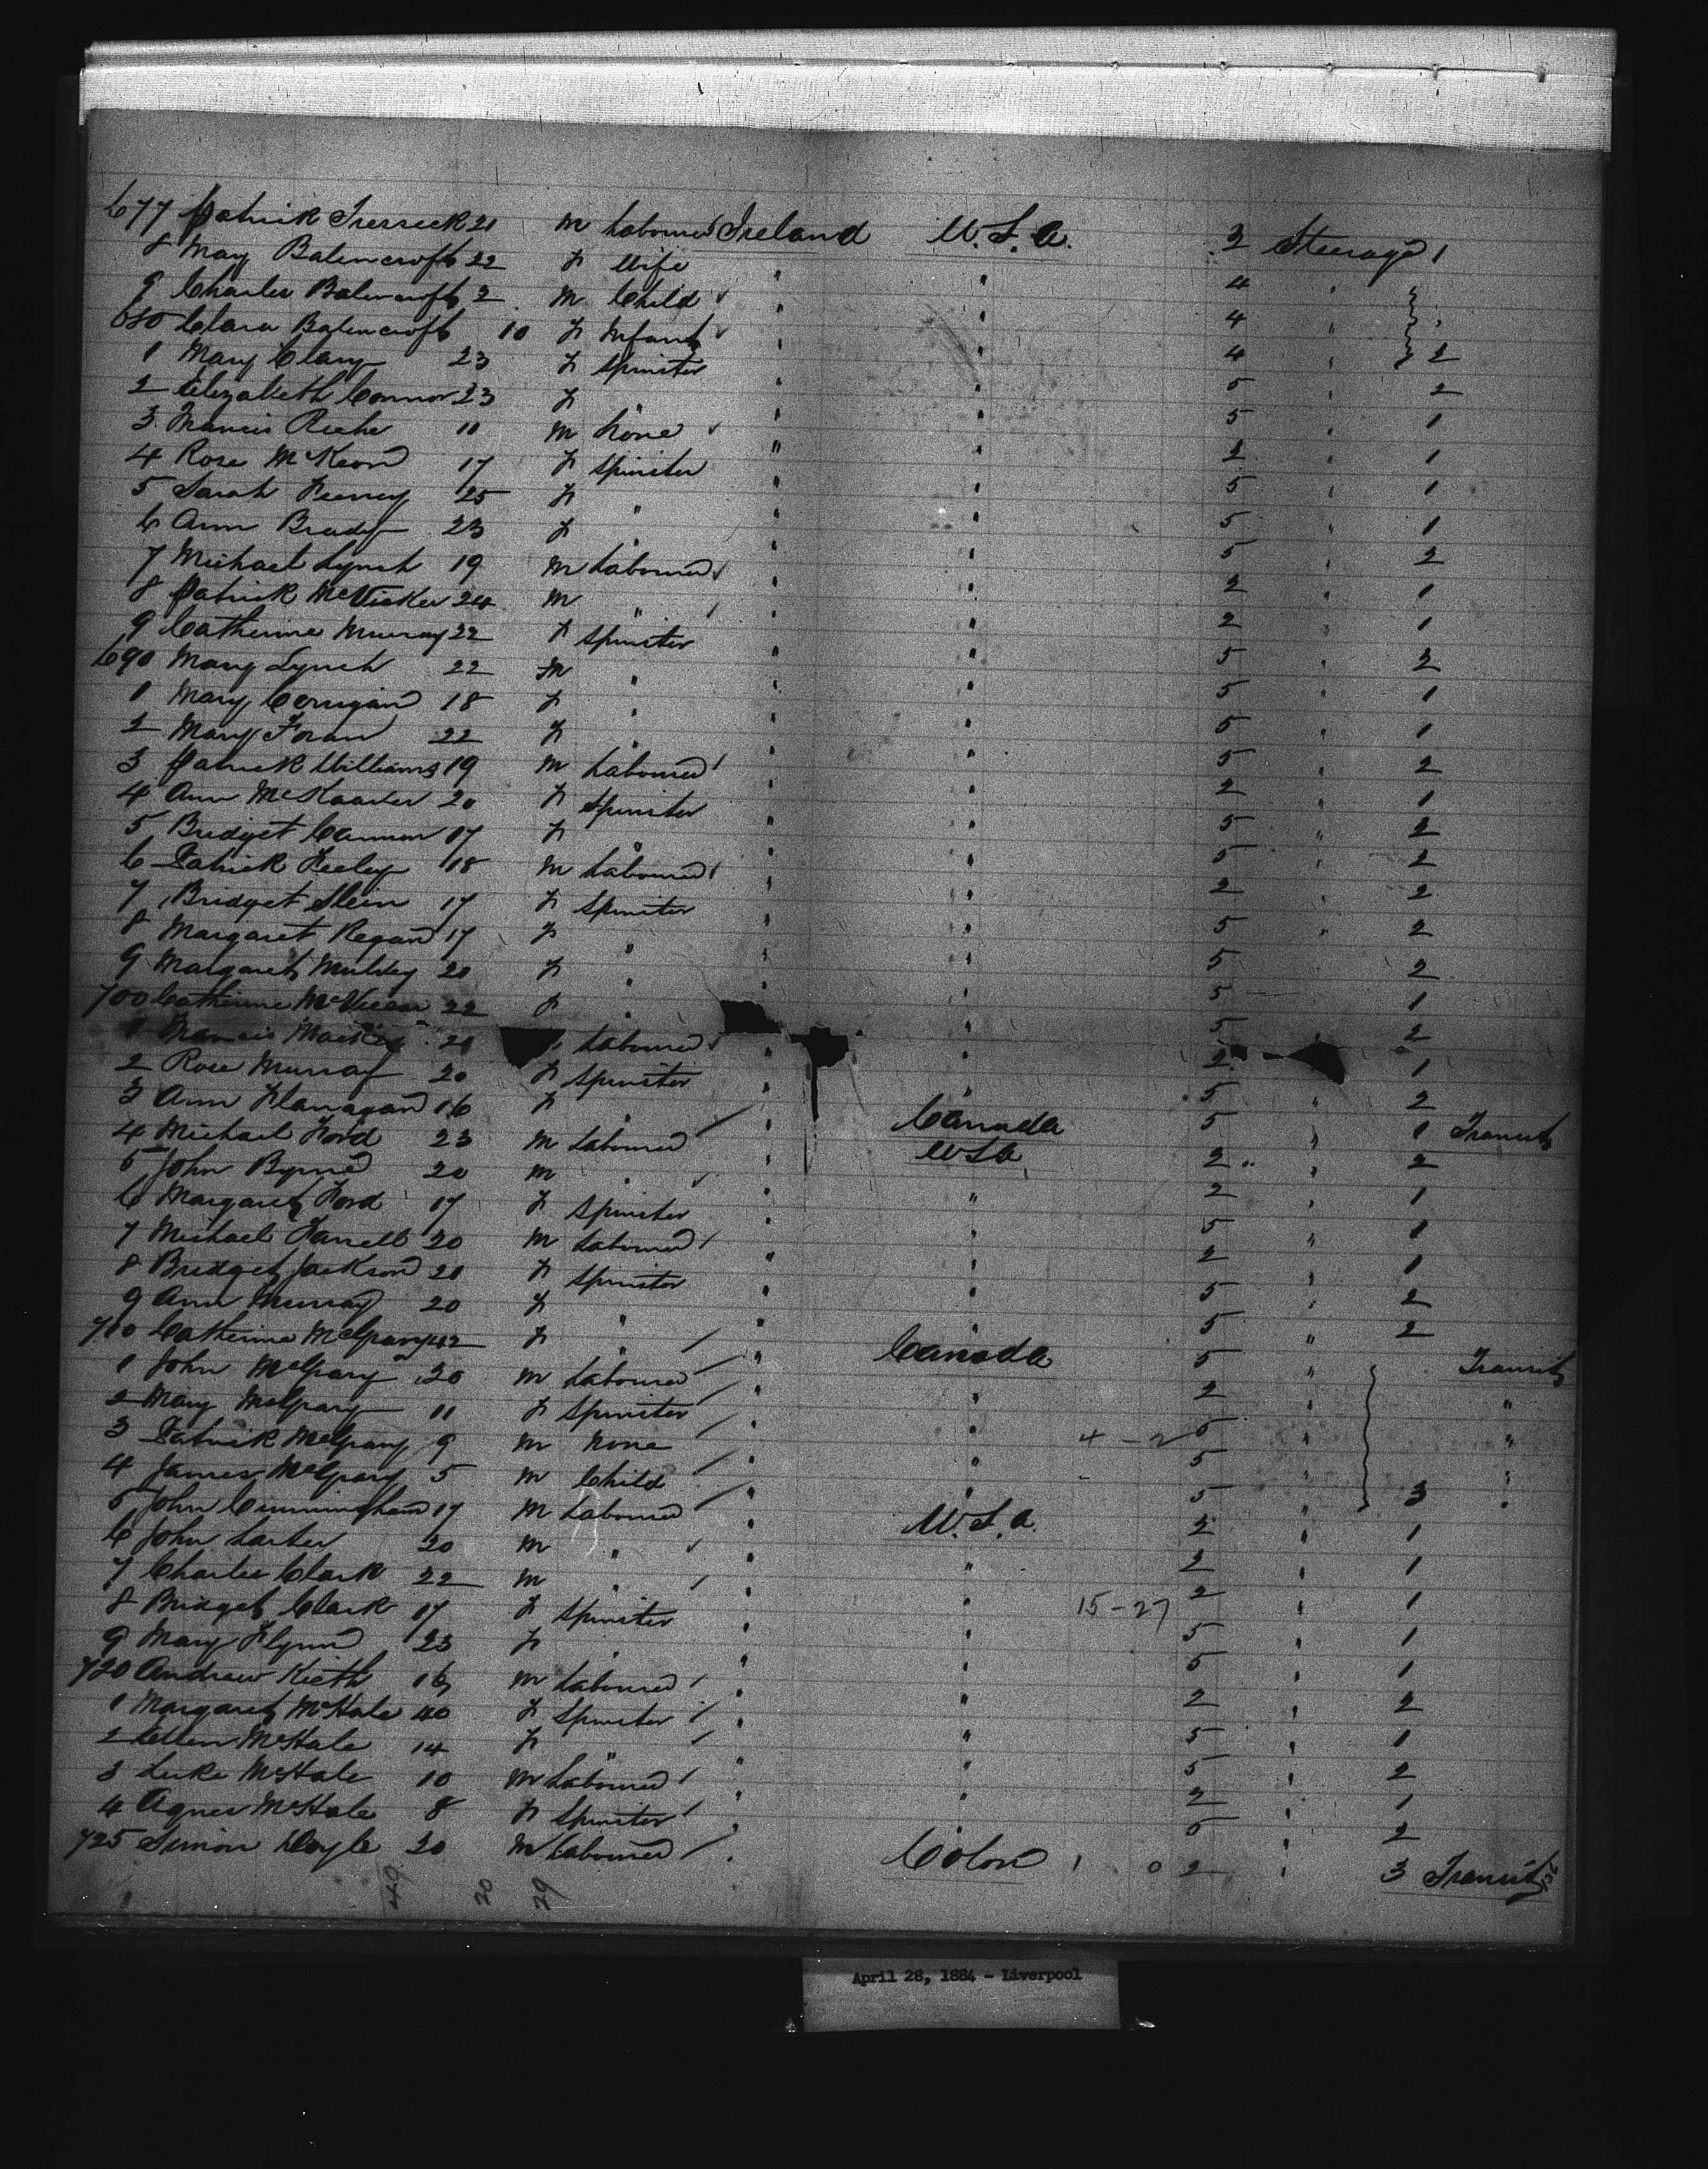 677 Patrick 21 M Labourer Ireland U.S.A. 2 Steerage 1
8 May Balencroft 22 F Wife " " 4 "
9 Charles Balencroft 2 M Child " " 4 "
680 Clara Balencroft 10 F Infant " " 4 " 2
1 Mary Clary 23 F Spinster " " 5 " 2
2 Elizabeth Connor 23 F " " " 5 " 1
3 Francis 11 M None " " 2 " 1
4 Rose McKeon 17 F Spinster " " 5 " 1
5 Sarah Feeney 25 F " " " 5 " 1
6 Ann Brady 23 F " " " 5 " 2
7 Michael Lynch 19 M Labourer " " 2 " 1
8 Patrick McVicker 24 M " " " 2 " 1
9 Catherine Murray 22 F Spinster " " 5 " 2
690 Mary Lynch 22 M " " " 5 " 1
1 Mary Corrigan 18 F " " " 5 " 1
2 Mary Foran 22 F " " " 5 " 2
3 Patrick Williams 19 M Labourer " " 2 " 1
4 Ann 20 F Spinster " " 5 " 2
5 Bridget Cannon 17 F " " " 5 " 2
6 Patrick Feeley 18 M Labourer " " 2 " 2
7 Bridget 17 F Spinster " " 5 " 2
8 Margaret Regan 17 F " " " 5 " 2
9 Margaret Mulvey 20 F " " " 5 " 1
700 Catherine 22 F " " " 5 " 2
1 Francis 21 Labourer " " 2 1
2 Rose Murray 20 F Spinster " " 5 " 2
3 Ann Flanagan 16 F " " Canada 5 " 1 Transit
4 Michael Ford 23 M Labourer " USA 2 " 2
5 John Byrne 20 M " " " 2 " 1
6 Margaret Ford 17 F Spinster " " 5 " 1
7 Michael Farrell 20 M Labourer " " 2 " 1
8 Bridget Jackson 21 F Spinster " " 5 " 2
9 Ann Murray 20 F " " " 5 " 2
710 Catherine McGrary 42 F " " Canada 5 " Transit
1 John McGrary 20 M Labourer " " 2 " "
2 Mary McGrary 11 F Spinster " " 5 " "
3 Patrick McGrary 9 M None " " 4 - 2 5 " "
4 James McGrary 5 M Child " " 5 " 3 "
5 John Cunningham 17 M Labourer " U.S.A. 2 " 1
6 John Larter 20 M " " " 2 " 1
7 Charles Clark 22 M " " " 2 " 1
8 Bridget Clark 17 F Spinster " " 15-27 5 " 1
9 Mary Flynn 23 F " " " 5 " 1
720 Andrew Kieth 16 M Labourer " " 2 " 2
1 Margaret McHale 40 F Spinster " " 5 " 1
2 Ellen McHale 14 F " " " 5 " 2
3 Luke McHale 10 M Labourer " " 2 " 1
4 Agnes McHale 8 F Spinster " " 5 " 2
725 Simon Doyle 20 M Labourer " Colon 0 2 " 3 Transit
49 20 29
April 28, 1884 - Liverpool